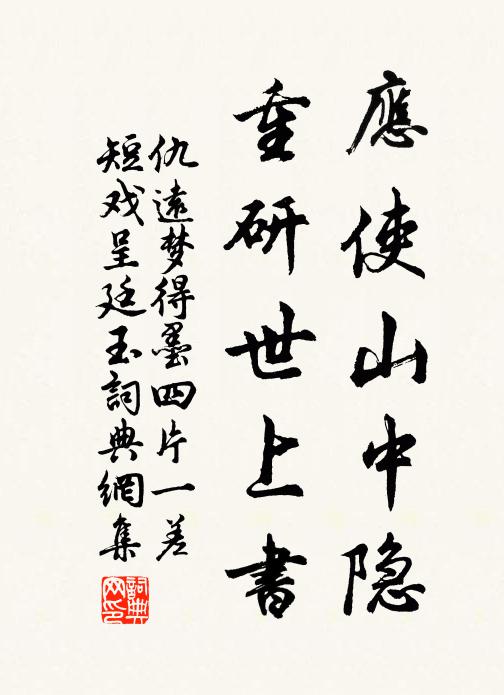 應使山中隐
重研世上書
仇遠梦得墨四片一差
短戏呈廷玉詞典網集
詞典网印